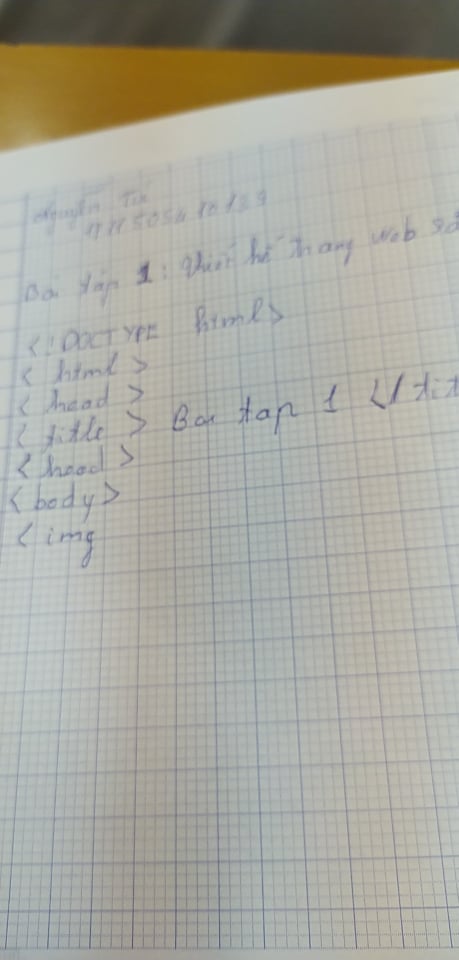 Nguyễn Tu
Bài tập 1: thiết kế trang web sử
<!DOCTYPE html>
< html >
< head >
< title > Bai tap 1 </ tit
< head >
< body >
< img